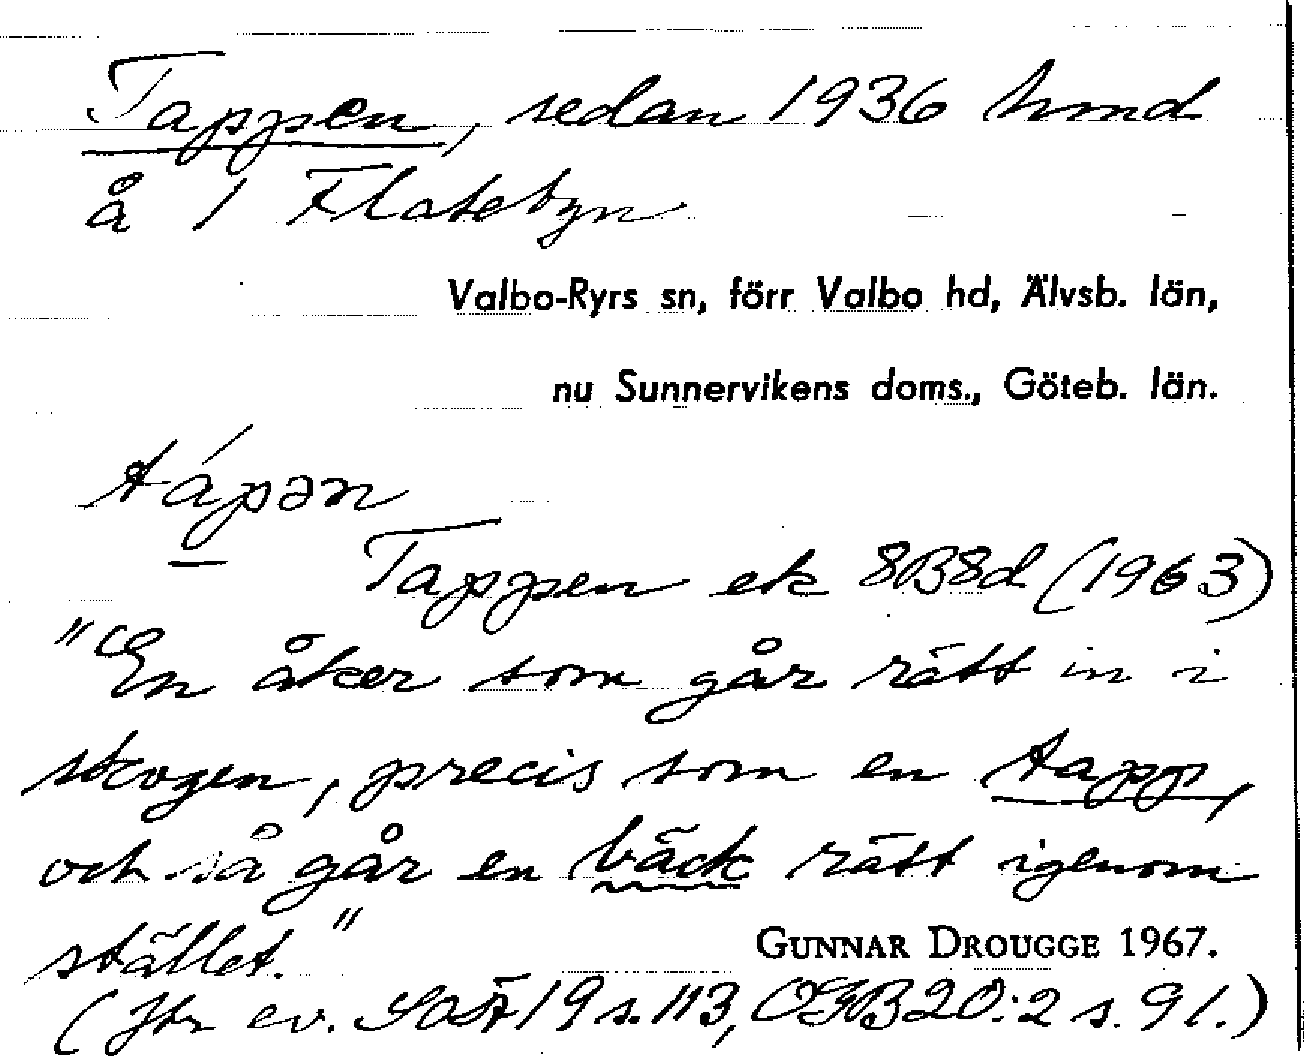 Tappen, sedan 1936 hmd
å 1 Flatebyn
Valbo-Ryrs sn, förr Valbo hd, Älvsb. län,
nu Sunnervikens doms., Göteb. län.
tápən
Tappen ek 8B8d (1963)
"En åker som går rätt in i
skogen, precis som en tapp,
och så går en bäck rätt igenom
stället."
GUNNAR DROUGGE 1967.
(Jfr ev. SOÄ 19 s. 113, OGB 20:2 s. 91.)